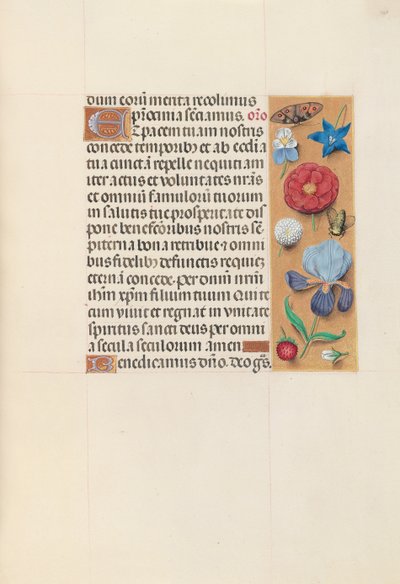 dum eorū merita recolimus
p̄roemia sēciamus. orō
Et pacem tuam nostris
concede temporibꝰ et ab ecclīa
tua cunctā repelle nequitiam
iter actus et voluntates nr̄as
et omniū famulorū tuorum
in salutis tue prosperitate dis
pone benefcoribus nostris sē
piterna bona retribue ⁊ omni
bus fidelibꝰ defunctis requiē
eternā concede. per dnm nrm̄
ihm̄ xpm̄ filium tuum Qui te
cum vivit et regnat in vnitate
spiritus sancti deus per omni
a secula seculorum amen
Benedicamus dn̄o. Deo gr̄s.